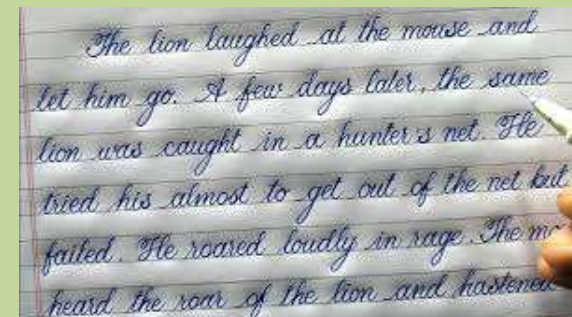 The lion laughed at the mouse and
let him go. A few days later, the same
lion was caught in a hunter's net. He
tried his almost to get out of the net but
failed. He roared loudly in rage. The
heard the roar of the lion and hastened